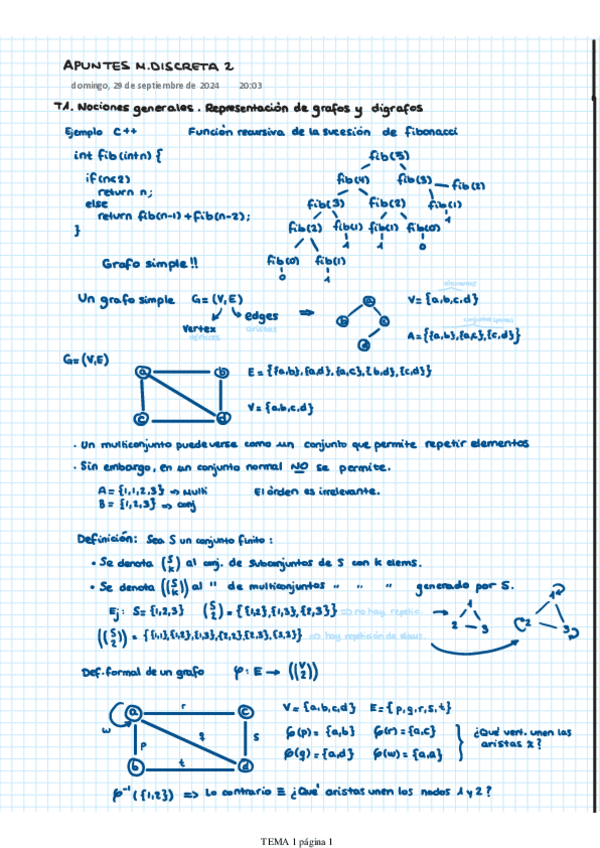 APUNTES M.DISCRETA 2
domingo, 29 de septiembre de 2024 20:03
T1. Nociones generales. Representación de grafos y digrafos
Ejemplo C++ Función recursiva de la sucesión de fibonacci
int fib(int n) {
if(n<2)
return n;
else
return fib(n-1)+fib(n-2);
}
fib(5)
fib(4) fib(3) fib(2)
fib(3) fib(2) fib(1)
fib(2) fib(1) fib(1) fib(0) 1
1 1 0
fib(0) fib(1)
0 1
Grafo simple!!
Un grafo simple G=(V,E) ⇒
vertex edges
vértices aristas
a b c d
elementos
V={a,b,c,d}
A={{a,b},{a,c},{c,d}}
G=(V,E)
a b c d
E={{a,b},{a,d},{a,c},{b,d},{c,d}}
V={a,b,c,d}
· Un multiconjunto puede verse como un conjunto que permite repetir elementos
· Sin embargo, en un conjunto normal NO se permite.
A={1,1,2,3} => Multi El órden es irrelevante.
B={1,2,3} => conj
Definición: Sea S un conjunto finito:
• Se denota (S k) al conj. de subconjuntos de S con k elems.
• Se denota ((S k)) al " de multiconjuntos " " " generado por S.
Ej: S={1,2,3} (S 2) = {{1,2},{1,3},{2,3}} => no hay repetic. → 1 2 3
((S 2)) = {{1,1},{1,2},{1,3},{2,2},{2,3},{3,3}} => hay repetición de elems. 1 2 3
Def. formal de un grafo φ: E → ((V 2))
a r c
w p q s
b t d
V={a,b,c,d} E={p,q,r,s,t}
φ(p)={a,b} φ(r)={a,c}
φ(q)={a,d} φ(w)={a,a}
¿Qué vert. unen las
aristas x?
φ⁻¹({1,2}) => Lo contrario ≡ ¿Qué aristas unen los nodos 1 y 2?
TEMA 1 página 1